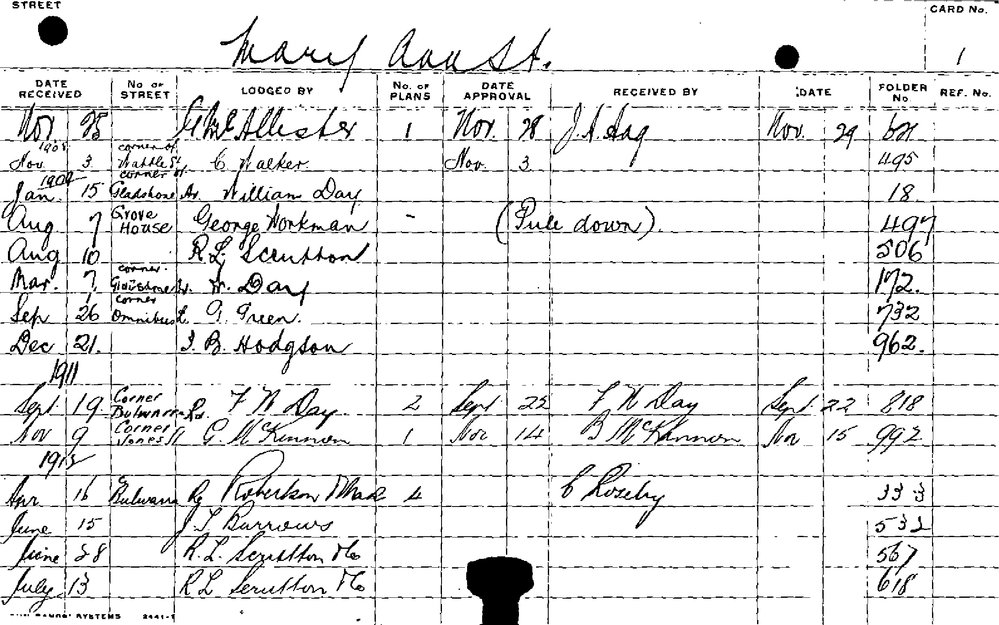 STREET
CARD No.
Mary Ann St.
1
DATE RECEIVED No OF STREET LODGED BY No. OF PLANS DATE APPROVAL RECEIVED BY DATE FOLDER No. REF. No.
Nov. 25 G McAllister 1 Nov. 28 Nov. 29
1908
Nov. 3 corner of Wattle St C Walker. Nov. 3 495
1909
Jan. 15 corner of Gladstone William Day 18.
Aug 7 Grove House George Workman - (Pull down). 497
Aug 10 R.L. Scrutton 506
Mar. 7 corner W. Day 172.
Sep 26 corner Omnibus G. Green. 732
Dec 21. B. Hodgson 962.
1911
Sept 19 Corner Bulwarra Rd. F W Day 2 Sept 22 F W Day Sept 22 818
Nov 9 Corner Jones St G. McKinnon 1 Nov 14 McKinnon Nov 15 992
1912
Apr 16 Bulwarra Robertson 4 C Roseby 333
June 15 J.L. Burrows 532
June 28 R.L. Scrutton & Co 567
July 13 R L Scrutton & Co 618
SYSTEMS 2441-1